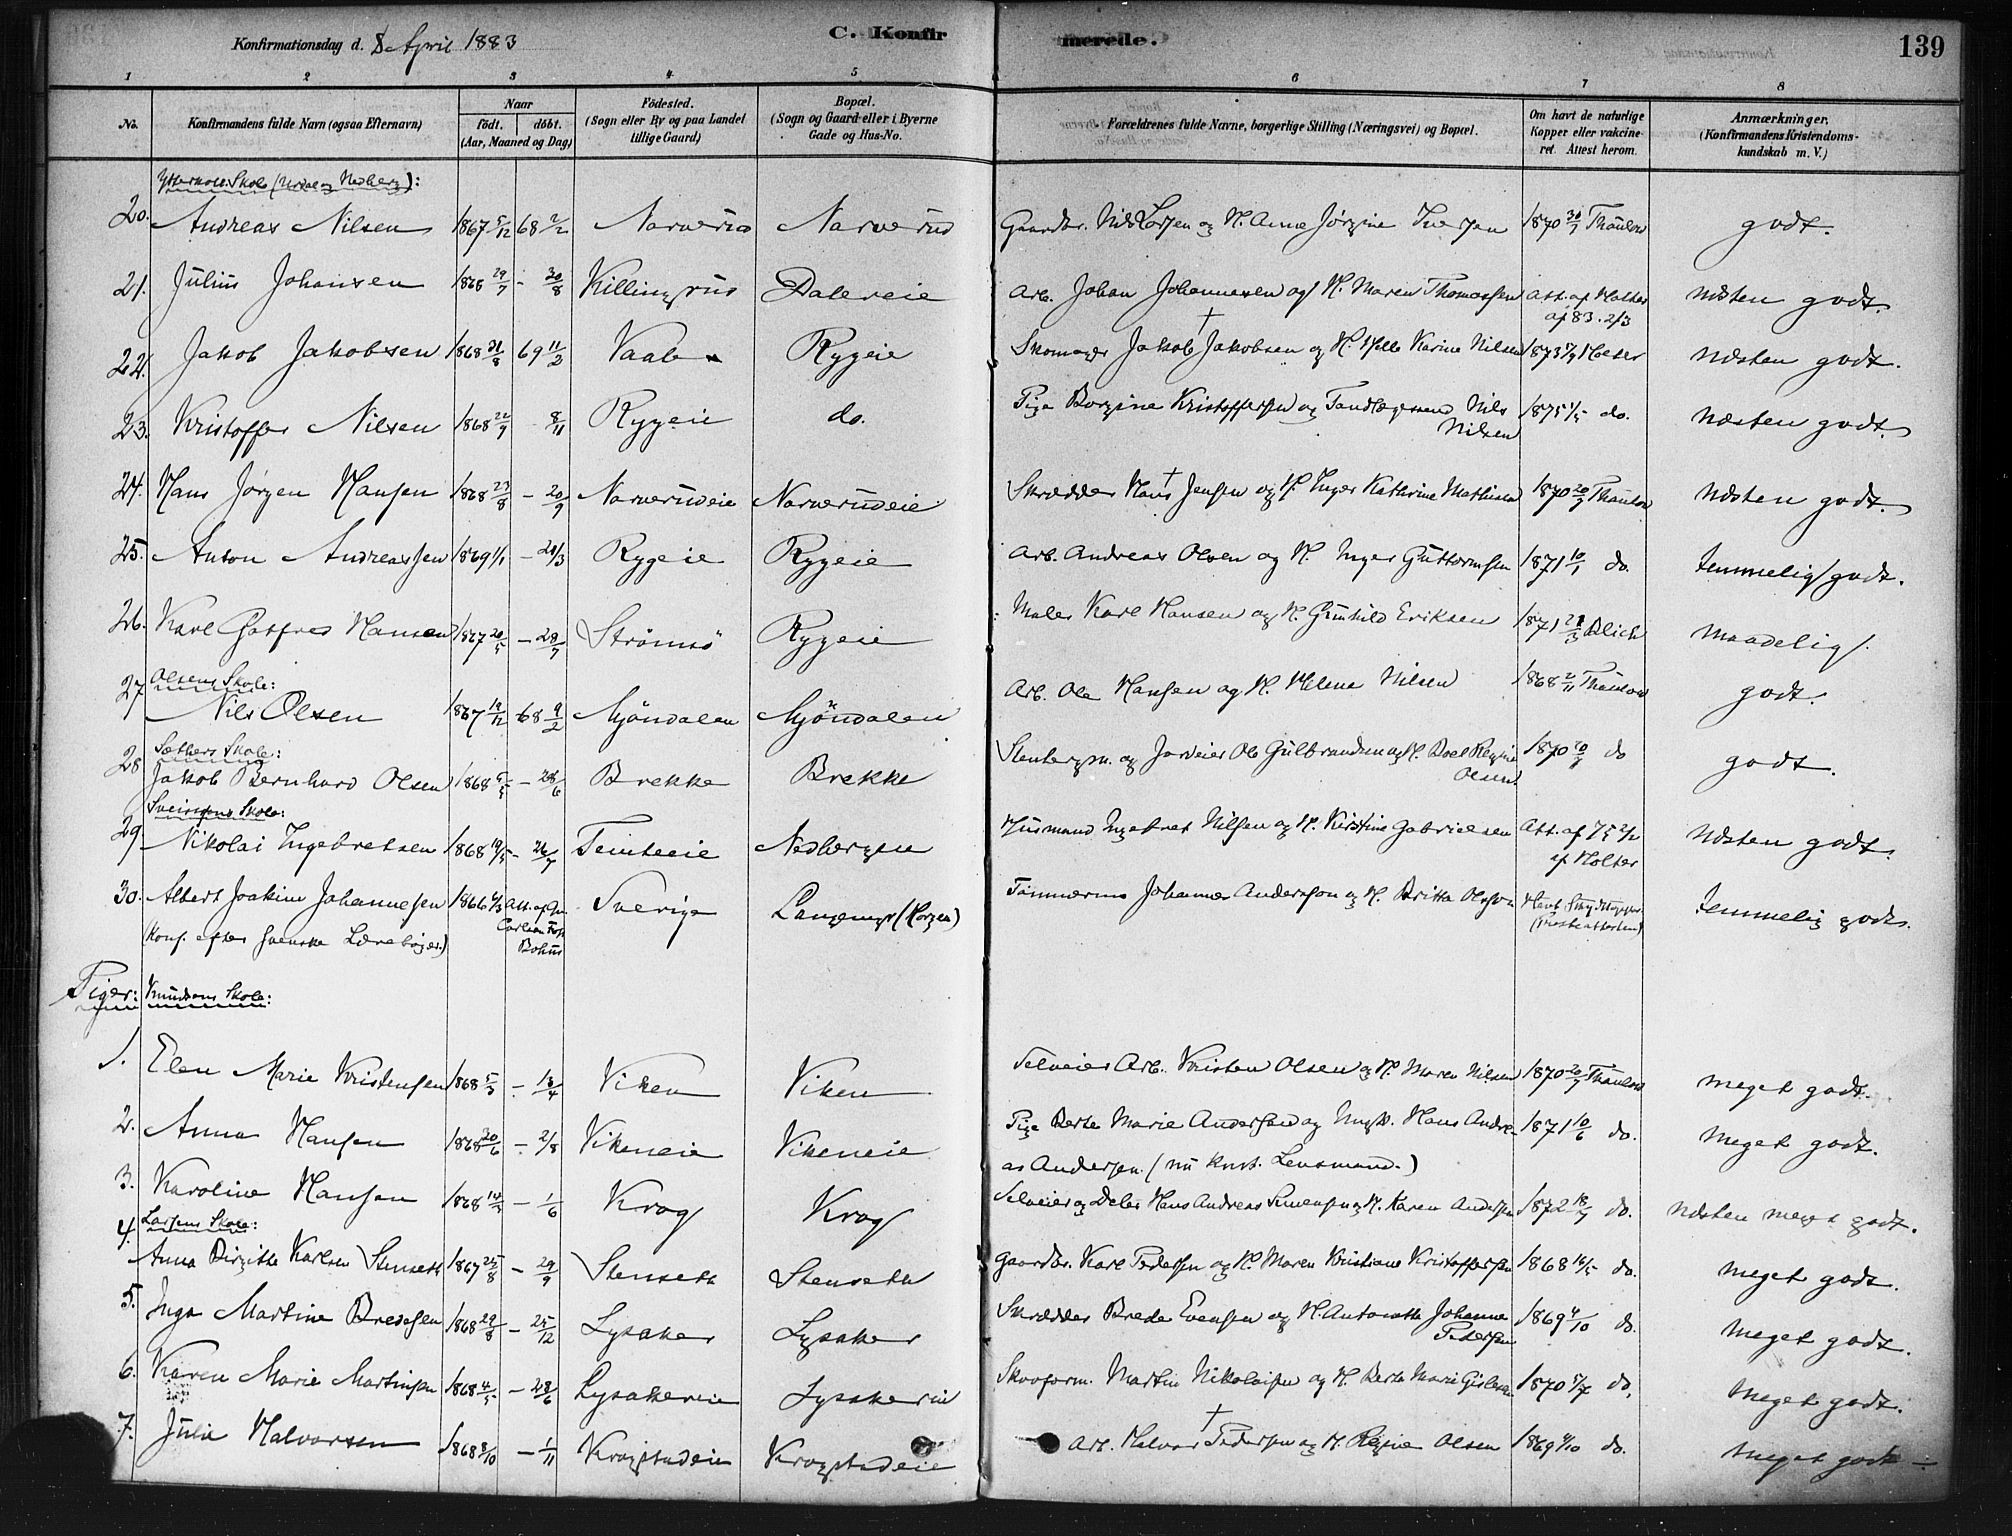 Konfirmationsdag d. 8 April 1883 C. Konfirmerede. 139
1 2 3 4 5 6 7 8
No. Konfirmandens fulde Navn (ogsaa Efternavn) Naar födt. döbt. (Aar, Maaned og Dag) Födested. (Sogn eller By og paa Landet tillige Gaard) Bopæl. (Sogn og Gaard eller i Byerne Gade og Hus-No. Forældrenes fulde Navne, borgerlige Stilling (Næringsvei) og Bopæl. Om havt de naturlige Kopper eller vakcineret. Attest herom. Anmærkninger. (Konfirmandens Kristendomskundskab m. V.)
Skole
20. Andreas Nilsen 1867 5/12 68 2/2 Narverud Narverud Gaardbr. Nils og H. Anne Jørgine Iversen 1870 30/7 Thaulow godt.
21. Julius Johansen 1868 29/7 – 30/8 Killingrud Dalereie Arb. Johan Johannesen og H. Maren Thomassen Att. af Holter af 83. 2/3 næsten godt.
22. Jakob Jakobsen 1868 31/8 69 11/2 Vaale Rygeie Skomager Jakob † Jakobsen og H. Helle Karine Nilsen 1873 Holter næsten godt.
23. Kristoffer Nilsen 1868 22/9 8/11 Rygeie do. Pige Borgine Kristoffersen og Nils Nilsen 1875 1/5 do. næsten godt.
24. Hans Jørgen Hansen 1868 23/8 – 20/9 Narverudeie Narverudeie Skrædder Hans † Jensen og H. Inger Kathrine 1870 20/7 Thaulow næsten godt.
25. Anton Andreassen 1869 1/1 – 21/3 Rygeie Rygeie Arb. Andreas Olsen og H. Inger Guttormsen 1871 10/1 do. temmelig godt.
26. Karl Gotfred Hansen 1867 20/5 – 28/7 Strömsö Rygeie Maler Karl Hansen og H. Gunhild Eriksen 1871 21/3 Blich maadelig.
Olsens Skole:
27 Nils Olsen 1867 19/12 68 9/2 Mjöndalen Mjöndalen Arb. Ole Hansen og H. Helene Nilsen 1868 2/11 Thaulow godt.
Sæthers Skole:
28 Jakob Bernhard Olsen 1868 5/5 – 28/6 Brekke Brekke og Jordeier Ole Gulbrandsen og H. Olsen 1870 do godt.
Skole:
29. Nikolai Ingebretsen 1868 19/5 – 26/7 Husmand Ingebret Nilsen og H. Kirstine Gabrielsen Att. af 75 af Holter næsten godt.
30. Albert Joakim Johannesen 1866 Att. af Bohus Sverige Johannes Andersson og H. Britta Olsson temmelig godt.
(Konf. efter svenske Lærebøger.)
Piger: Knudsens Skole:
1. Elen Marie Kristensen 1868 5/3 – 13/4 Viken Viken Selveier Arb. Kristen Olsen og H. Maren Nilsen 1870 20/7 Thaulow meget godt.
2. Anna Hansen 1868 20/6 – 2/8 Vikeneie Vikeneie Pige Berte Marie Andersen og Ungk. Hans Andreas Andersen. (nu konst. Lensmand.) 1871 10/6 do. meget godt.
3. Karoline Hansen 1868 – 1/6 Krog Krog Selveier og Hans Andreas og H. Karen Andersen 1872 18/7 do. næsten meget godt.
Larsens Skole:
4. Anna Birgitte Karlsen Stenseth 1867 25/8 – 29/9 Stenseth Stenseth Gaardbr. Karl Pedersen og H. Maren Kristiane Kristoffersen 1868 do. meget godt.
5. Inga Martine Bredesen 1868 29/8 – 25/12 Lysaker Lysaker Skrædder Brede Evensen og H. Antonette Johanne Pedersen 1869 4/10 do. meget godt.
6. Karen Marie Martinsen 1868 4/5 – 28/6 Lysakereie Lysakereie Martin Nikolaisen og H. Berte Marie 1870 do. meget godt.
7. Julie Halvorsen 1868 8/10 – 1/11 Krogstadeie Krogstadeie Arb. Halvor † Pedersen og H. Olsen 1869 do. meget godt